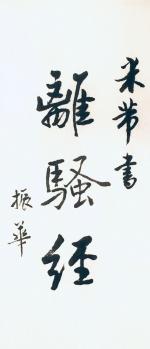 米芾書
離騷經
振華